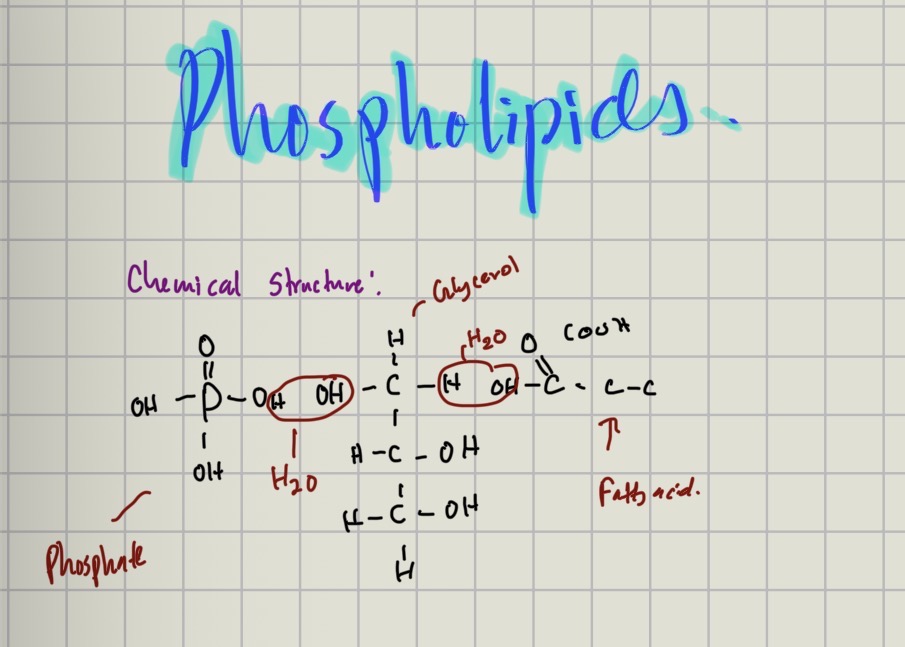 Phospholipids.
Chemical Structure:
Glycerol
H
H2O
O
COOH
O
OH - P - OH
OH - C - H
OH - C - C - C
OH
H2O
H - C - OH
H - C - OH
H
Fatty acid.
Phosphate